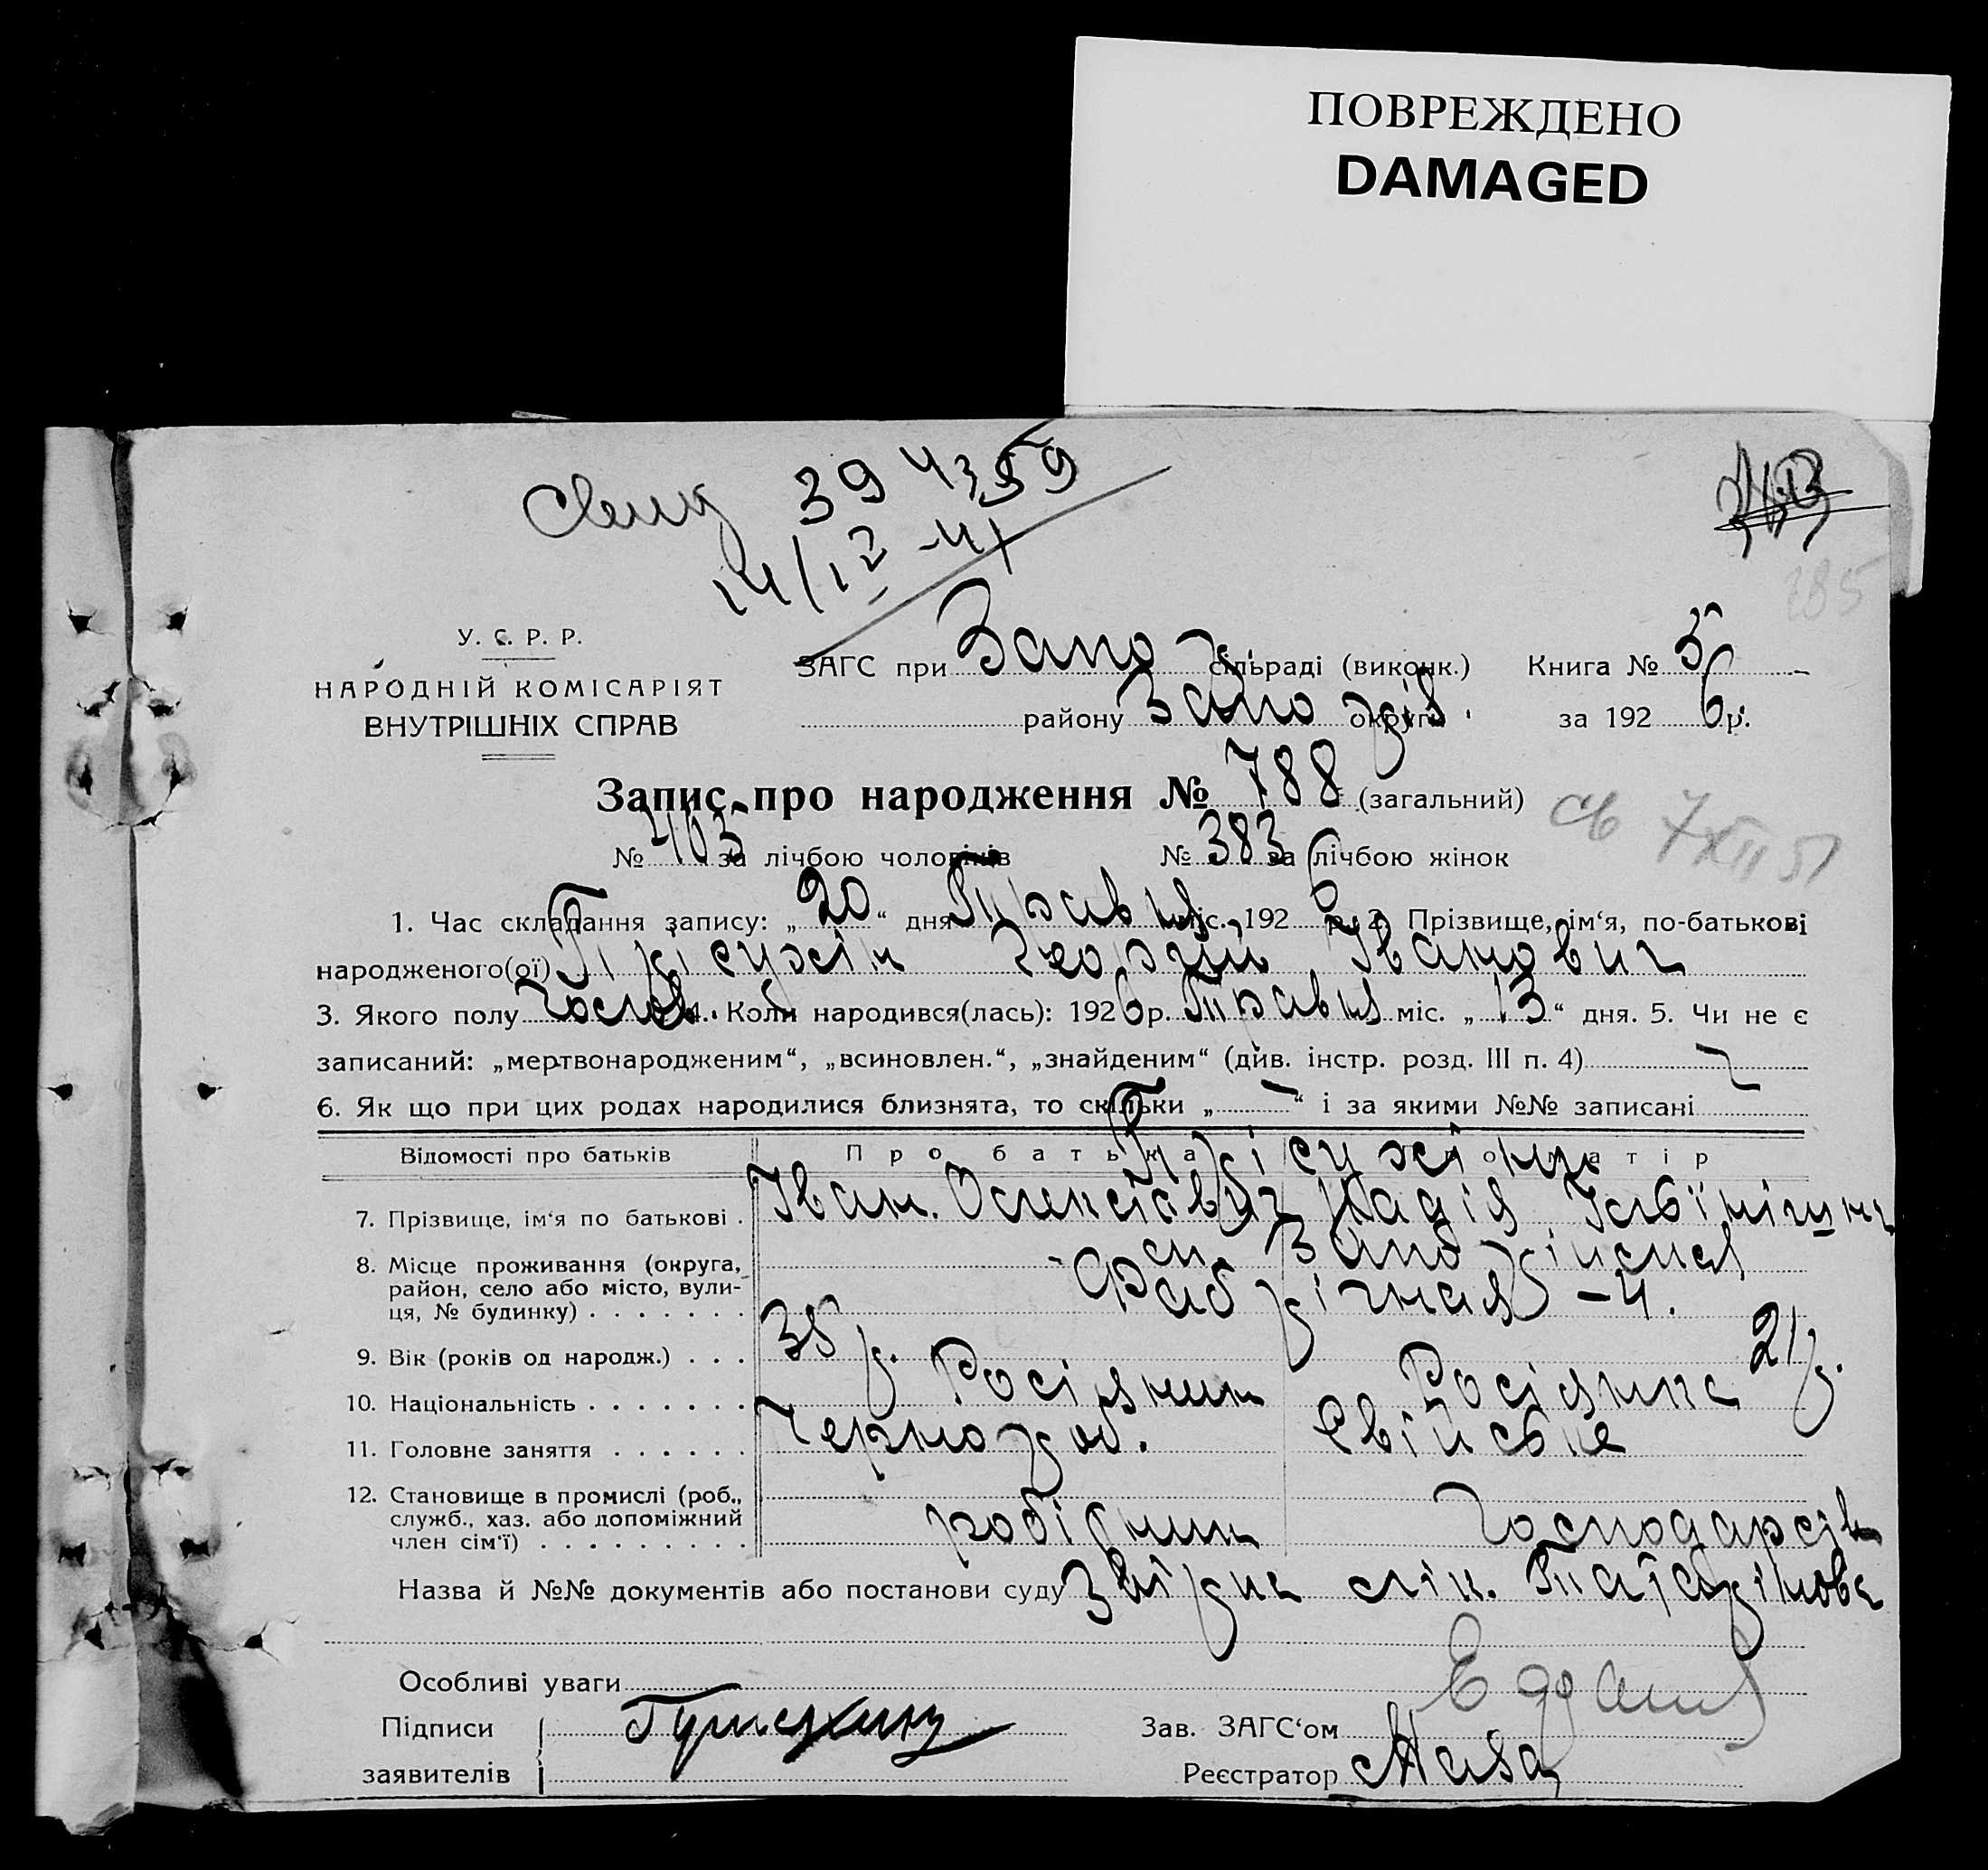 ПОВРЕЖДЕНО
DAMAGED
39 4359
У. С. Р. Р.
НАРОДНІЙ КОМІСАРІЯТ
ВНУТРІШНІХ СПРАВ
ЗАГС при Запо сільраді (виконк.) Книга № 5
району округи за 192 6 р.
Запис про народження № 788 (загальний)
№ 405 за лічбою чоловіків № 383 за лічбою жінок
1. Час складання запису: „ 20 “ дня Травня міс. 192 6 р. 2. Прізвище, ім‘я, по-батькові
народженого(ої) Георгій Іванович
3. Якого полу Чолов. 4. Коли народився(лась): 192 6 р. Травня міс. „ 13 “ дня. 5. Чи не є
записаний: „мертвонародженим“, „всиновлен.“, „знайденим“ (див. інстр. розд. III п. 4)
6. Як що при цих родах народилися близнята, то скільки „ — “ і за якими №№ записані
Відомості про батьків Про батька Про матір
7. Прізвище, ім‘я по батькові . Іван. Олексієвич Надія
8. Місце проживання (округа,
район, село або місто, вули-
ця, № будинку) . . . . . . . Фабрічная – 4.
9. Вік (років од народж.) . . . 38 р. 21 р.
10. Національність . . . . . . . Росіянин Росіянка
11. Головне заняття . . . . . . Чернороб. Свійське
12. Становище в промислі (роб.,
служб., хаз. або допоміжний
член сім‘ї) . . . . . . . . . робітник Господарств
Назва й №№ документів або постанови суду лік.
Особливі уваги
Підписи Зав. ЗАГС‘ом
заявителів Реєстратор